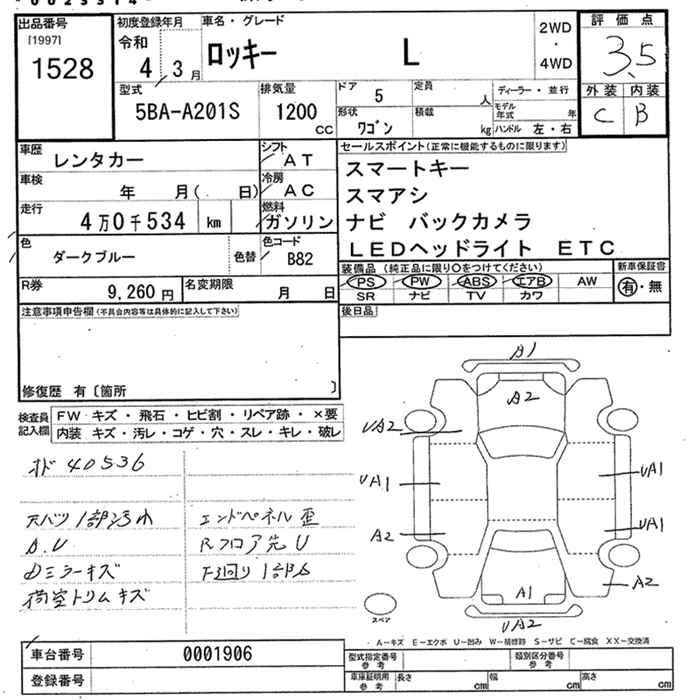 出品番号
[1997]
1528
初度登録年月
令和
4 3月
車名・グレード
ロッキー L
2WD
・
4WD
評価点
3.5
外装 内装
C B
型式
5BA-A201S
排気量
1200
CC
ドア
5
定員
人
形状
ワゴン
積載
kg
ディーラー・並行
モデル年式
年
ハンドル 左・右
車歴
レンタカー
シフト
AT
車検
年 月( 日)
冷房
AC
走行
4万0千534 km
燃料
ガソリン
色
ダークブルー
色替
色コード
B82
R券
9,260円
名変期限
月 日
セールスポイント(正常に機能するものに限ります)
スマートキー
スマアシ
ナビ バックカメラ
LEDヘッドライト ETC
装備品(純正品に限り○をつけてください)
新車保証書
PS PW ABS エアB AW
SR ナビ TV カワ
有・無
後日品
注意事項申告欄(不具合内容等は具体的に記入して下さい)
修復歴 有〔箇所 〕
検査員
記入欄
FW キズ・飛石・ヒビ割・リペア跡・×要
内装 キズ・汚レ・コゲ・穴・スレ・キレ・破レ
オド 40536
内バツ 1部汚れ
A.U
Dミラーキズ
荷室トリムキズ
エンドパネル歪
Rフロア先U
下回り1部A
A1
A2
UA2
UA1
UA1
A2
UA1
A2
A1
UA2
スペア
A-キズ E-エクボ U-凹み W-補修跡 S-サビ C-腐食 XX-交換済
車台番号
0001906
登録番号
型式指定番号
参考
類別区分番号
参考
車庫証明用
参考
長さ cm
幅 cm
高さ cm